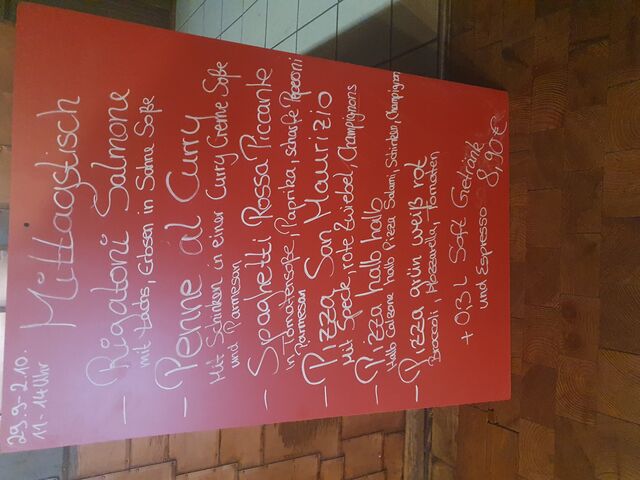 29.9-2.10.
11-14 Uhr
Mittagstisch
- Rigatoni Salmone
mit Lachs, Erbsen in Sahne Soße
- Penne al Curry
Mit Schinken in einer Curry Creme Soße
und Parmesan
- Spaghetti Rossa Piccante
in Tomatensoße, Paprika, scharfe Peperoni
Parmesan
- Pizza San Maurizio
Mit Speck, rote Zwiebel, Champignons
- Pizza halb halb
Halb Calzone halb Pizza Salami, Schinken, Champignon
- Pizza grün weiß rot
Broccoli, Mozzarella, Tomaten
+ 0,3 L Soft Getränk
und Espresso 8,90€